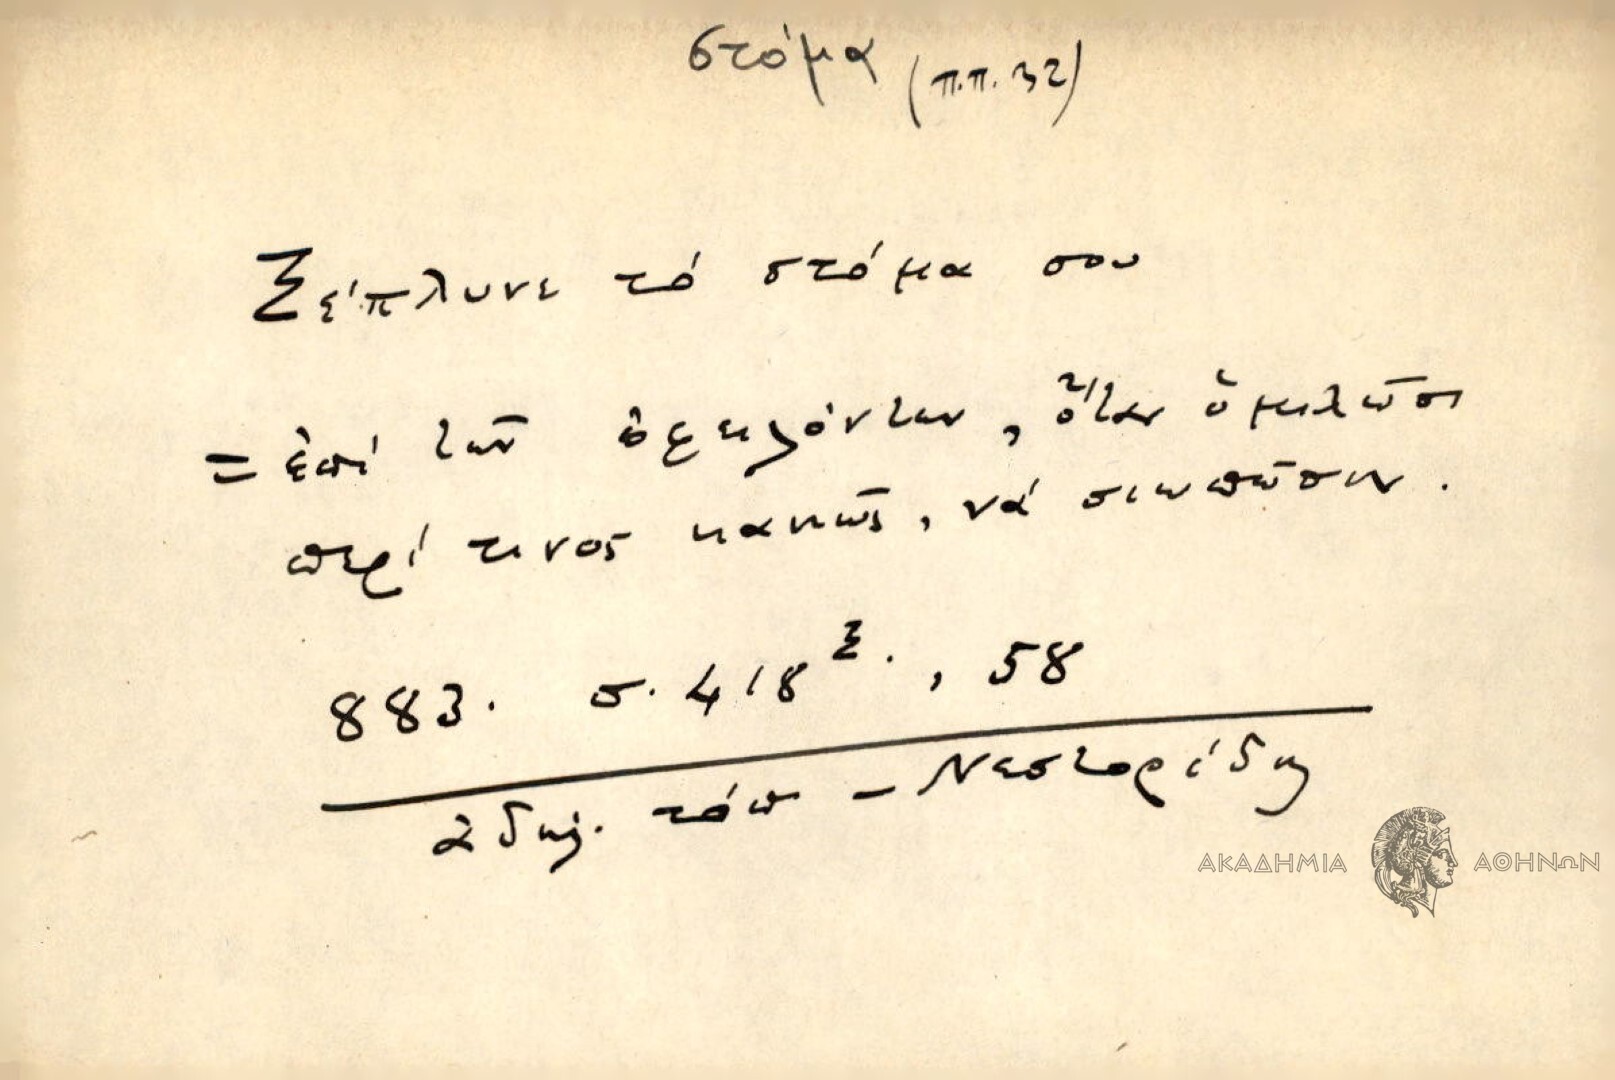 στόμα (π.π. 32)
Ξέπλυνε τό στόμα σου
= ἐπί τῶν ὀφειλόντων, ὅταν ὁμιλῶσι
περί τινος κακῶς, νά σιωπῶσιν.
883. σ. 418 Σ., 58
ἀδήλ. τόπ – Νεστορίδη
ΑΚΑΔΗΜΙΑ ΑΘΗΝΩΝ